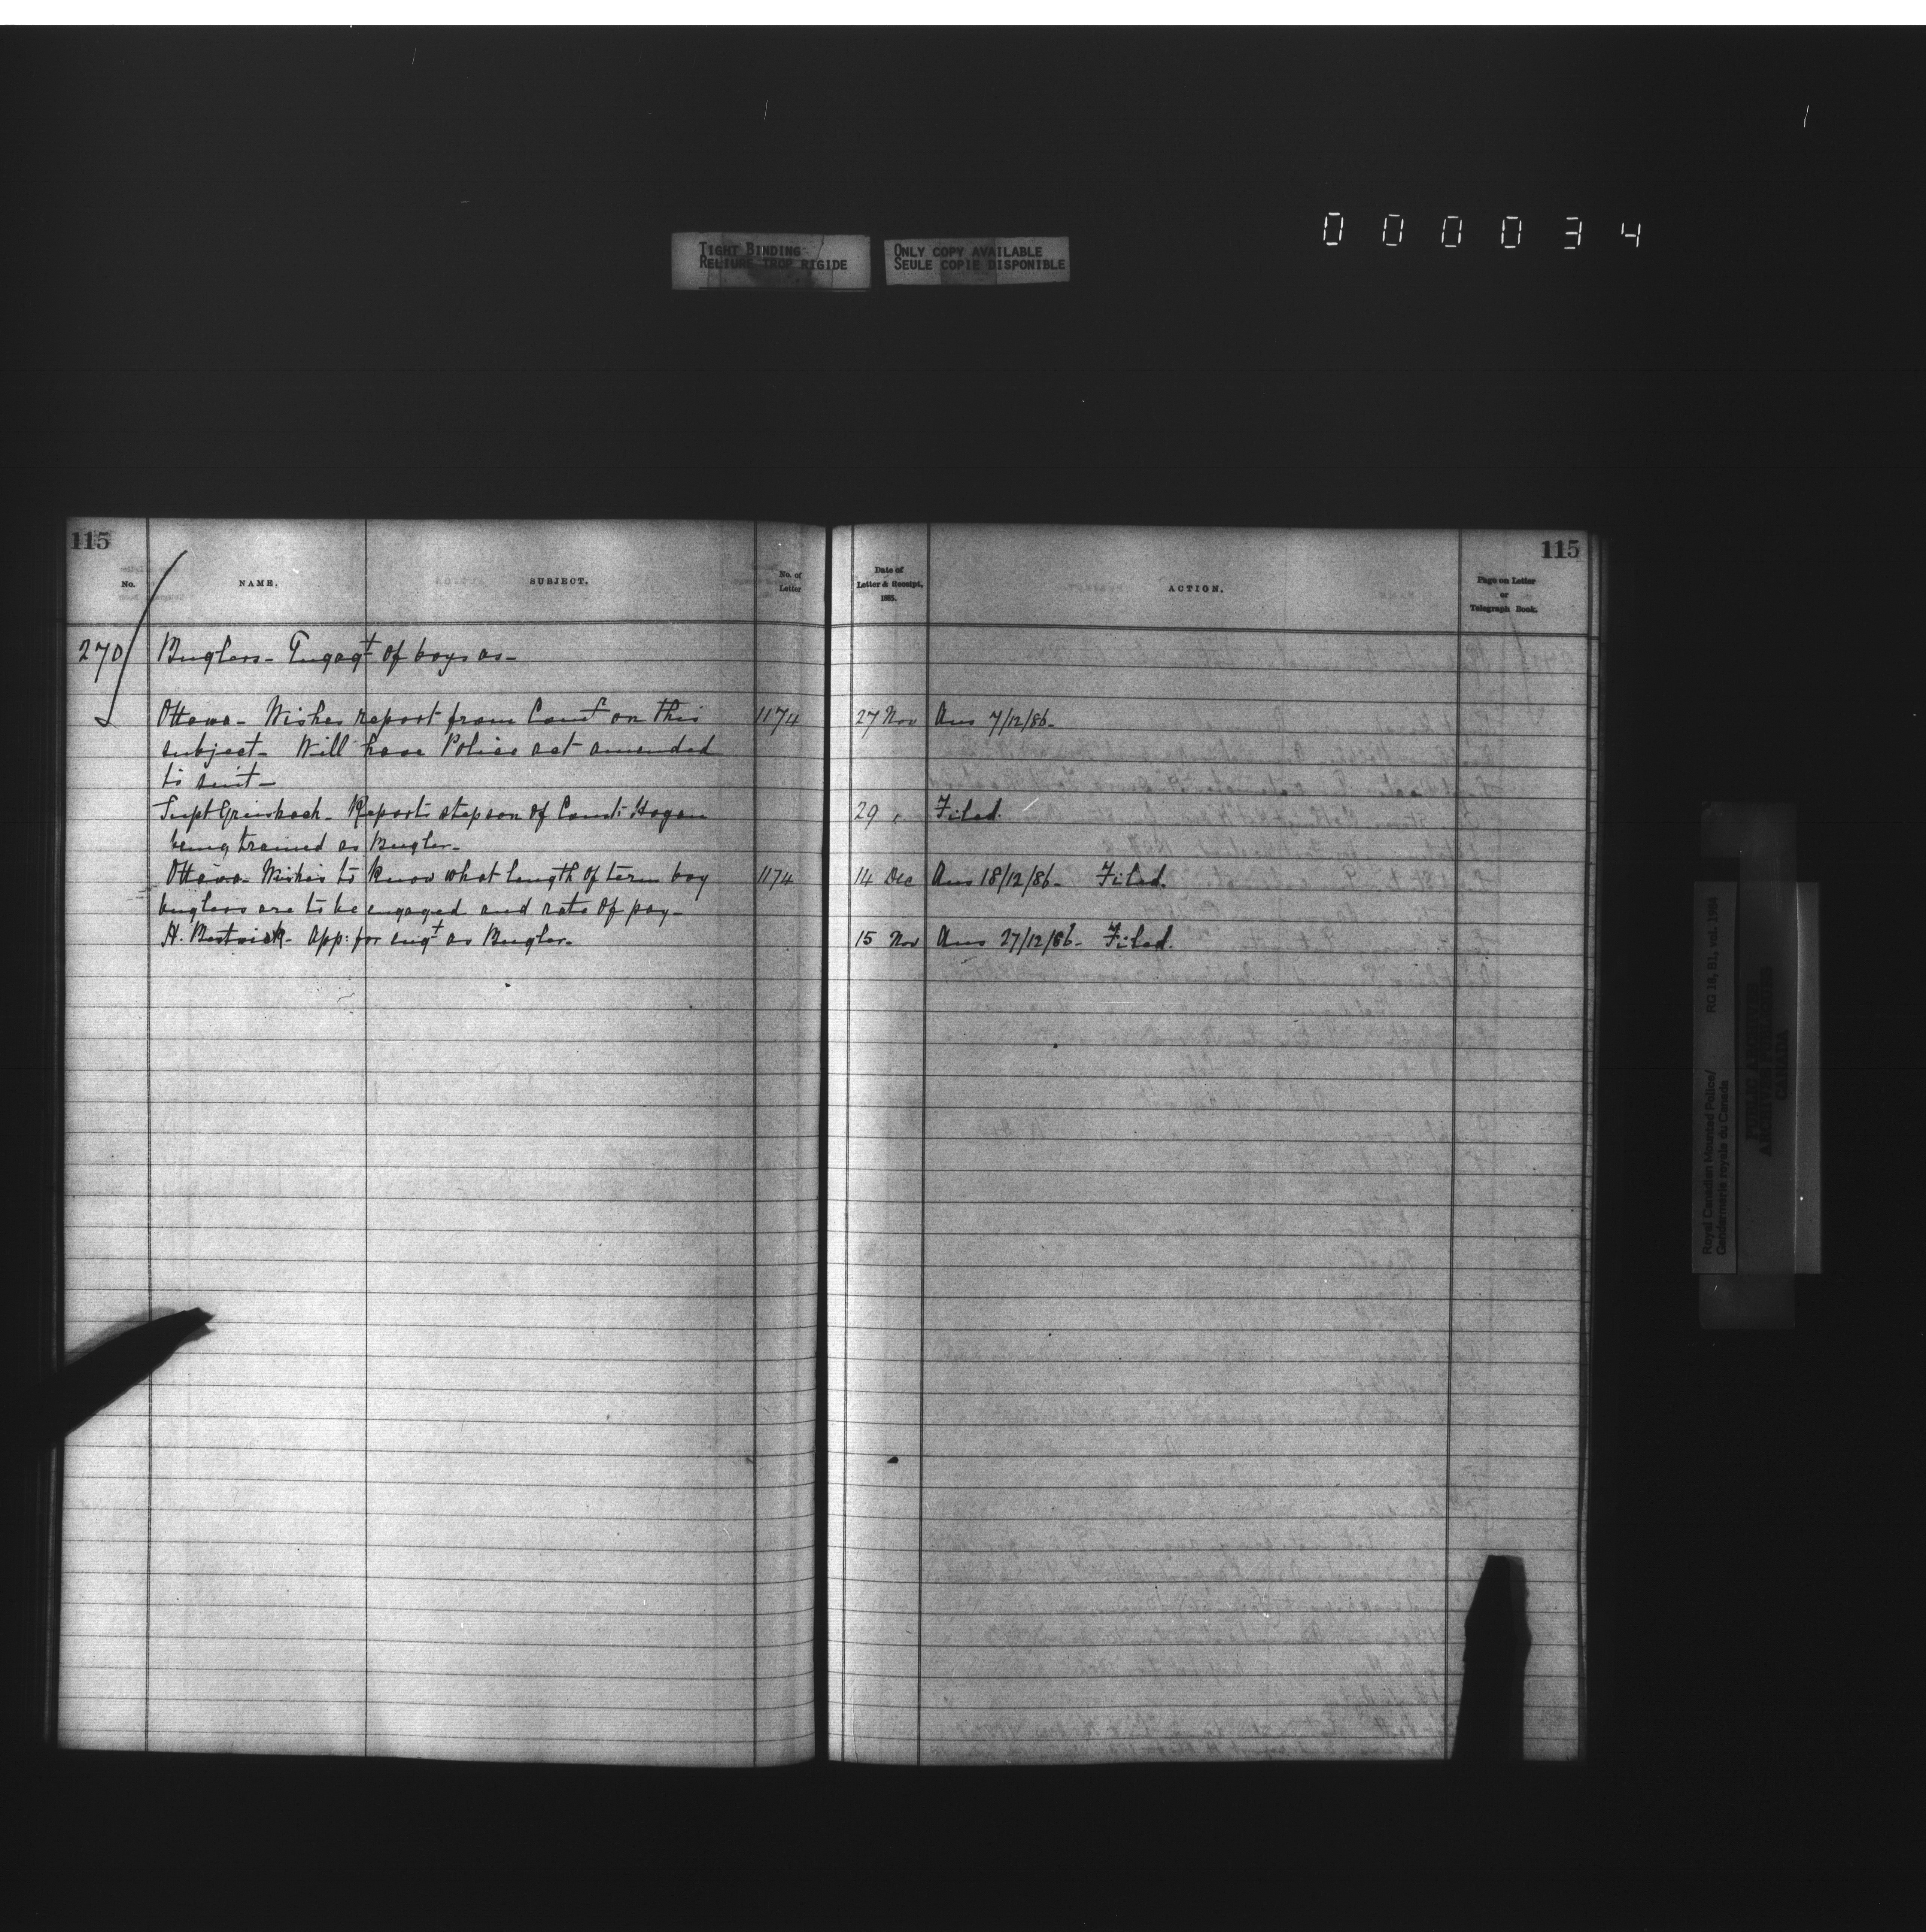 000034
TIGHT BINDING
RELIURE TROP RIGIDE
ONLY COPY AVAILABLE
SEULE COPIE DISPONIBLE
115
No.
NAME.
SUBJECT.
No. of
Letter
270 Buglers - Engagt of boys as -
Ottawa - Wishes report from Comr on this 1174
subject - Will have Police act amended
to suit -
Supt Griesbach - Reports stepson of Const: Hogan
being trained as Bugler -
Ottawa - Wishes to know what length of term boy 1174
buglers are to be engaged and rate of pay -
H. Bestwick - App: for engt as Bugler -
115
Date of
Letter & Receipt,
1885.
ACTION.
Page on Letter
or
Telegraph Book.
27 Nov Ans 7/12/86 -
29 " Filed.
14 Dec Ans 18/12/86 - Filed.
15 Nov Ans 27/12/86 - Filed.
Royal Canadian Mounted Police/ RG 18, B1, vol. 1984
Gendarmerie royale du Canada
PUBLIC ARCHIVES
ARCHIVES PUBLIQUES
CANADA